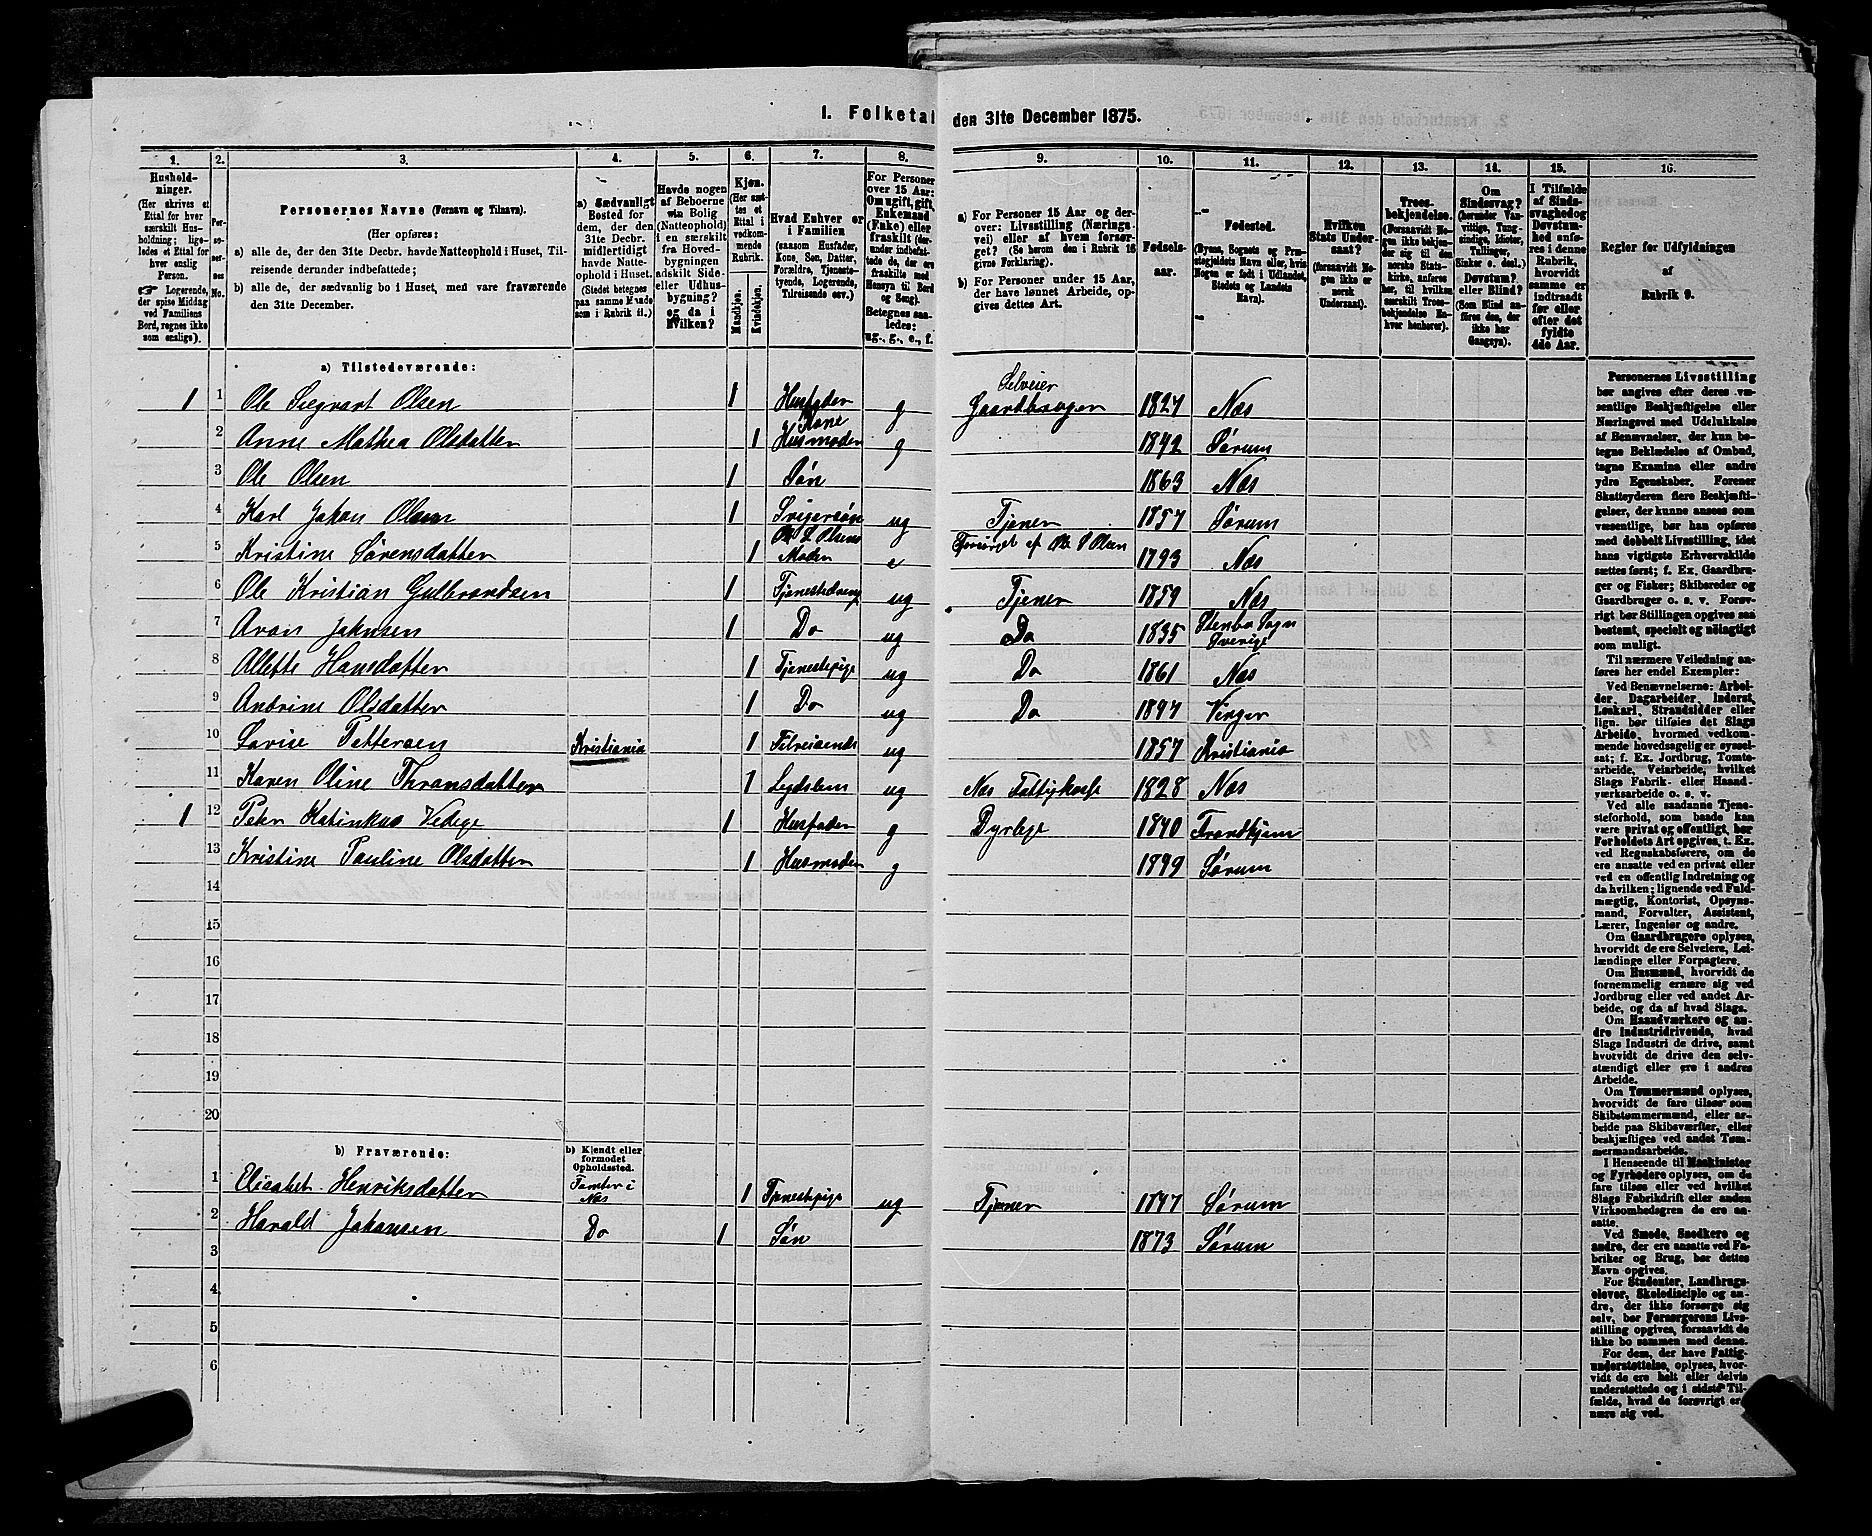 1. Folketal den 31te December 1875.
1. 2. 3. 4. 5. 6. 7. 8. 9. 10. 11. 12. 13. 14. 15. 16.
Hushold-
ninger.
(Her skrives et
Ettal for hver
særskilt Hus-
holdning; lige-
ledes et Ettal for
hver enslig
Person.
☞ Logerende,
der spise Middag
ved Familiens
Bord, regnes ikke
som enslige).
Per-
so-
ner-
nes
No.
Personernes Navne (Fornavn og Tilnavn).
(Her opføres:
a) alle de, der den 31te Decbr. havde Natteophold i Huset, Til-
reisende derunder indbefattede;
b) alle de, der sædvanlig bo i Huset, med vare fraværende
den 31te December.
a) Sædvanligt
Bosted for
dem, der den
31te Decbr.
midlertidigt
havde Natte-
ophold i Huset.
(Stedet betegnes
paa samme Maade
som i Rubrik 11.)
Havde nogen
af Beboerne
sin Bolig
(Natteophold)
i en særskilt
fra Hoved-
bygningen
adskilt Side-
eller Udhus-
bygning? og
og da i
hvilken?
Kjøn.
(Her sæt-
tes et
Ettal i
vedkom-
mende
Rubrik.
Mandkjøn.
Kvindekjøn.
Hvad Enhver er
i Familien
(saasom Husfader,
Kone, Søn, Datter,
Forældre, Tjeneste-
tyende, Logerende,
Tilreisende osv.)
For Personer
over 15 Aar:
Om ugift, gift,
Enkemand
(Enke) eller
fraskilt (der-
under indbefat-
tede de, der ere
fraskilte med
Hensyn til Bord
og Seng).
Betegnes saa-
ledes:
ug., g., e., f.
a) For Personer 15 Aar og der-
over: Livsstilling (Nærings-
vei) eller af hvem forsør-
get? (Se herom den i Rubrik 16
givne Forklaring).
b) For Personer under 15 Aar,
der have lønnet Arbeide, op-
gives dettes Art.
Fødsels-
aar.
Fødested.
(Byens, Sognets og Præ-
stegjeldets Navn eller, hvis
Nogen er født i Udlandet,
Stedets og Landets
Navn).
Hvilken
Stats Under-
saat?
(forsaavidt No-
gen ikke er
norsk
Undersaat).
Troes-
bekjendelse.
(Forsaavidt No-
gen ikke bekjen-
der sig til den
norske Stats-
kirke, anføres
her, til hvilken
særskilt Troes-
bekjendelse En-
hver henhører).
Om
Sindssvag?
(herunder Van-
vittige, Tung-
sindige, Idioter,
Tullinger,
Sinker o. desl.)
Døvstum?
eller Blind?
(Som Blind an-
føres den, der
ikke har
Gangsyn).
I Tilfælde
af Sinds-
svaghed og
Døvstum-
hed anfø-
res i denne
Rubrik,
hvorvidt
samme er
indtraadt
før eller
efter det
fyldte
4de Aar.
Regler for Udfyldningen
af
Rubrik 9.
a) Tilstedeværende:
1 1 Ole Sigvart Olsen 1 Husfader g Selveier Gaardbruger 1827 Næs
2 Anne Mathea Olsdatter 1 Kone Husmoder g 1842 Sørum
3 Ole Olsen 1 Søn 1863 Næs
4 Karl Johan Olsen 1 Svigersøn ug Tjener 1857 Sørum
5 Kristine Sørensdatter 1 Ole S Olsens Moder e Forsørget af Ole S Olsen 1793 Næs
6 Ole Kristian Gulbrandsen 1 Tjenestedreng ug Tjener 1859 Næs
7 Aron Jahnsen 1 Do ug Do 1835 Stenbo Sogn Sverige
8 Alette Hansdatter 1 Tjenestepige ug Do 1861 Næs
9 Antrine Olsdatter 1 Do ug Do 1847 Vinger
10 Lovise Pettersen Kristiania 1 Tilreisende ug 1857 Kristiania
11 Karen Oline Thransdatter 1 Legdslem ug Næs Fattigkasse 1828 Næs
1 12 Peter Katinkus Vedege 1 Husfader g Dyrlege 1840 Trondhjem
13 Kristine Pauline Olsdatter 1 Husmoder g 1849 Sørum
14
15
16
17
18
19
20
b) Fraværende:
b) Kjendt eller
formodet
Opholdssted.
1 Elisabet Henriksdatter Tomter i Næs 1 Tjenestepige ug Tjener 1847 Sørum
2 Harald Johansen Do 1 Søn 1873 Sørum
3
4
5
6
Personernes Livsstilling
bør angives efter deres væ-
sentlige Beskjæftigelse eller
Næringsvei med Udelukkelse
af Benævnelser, der kun be-
tegne Beklædelse af Ombud,
tagne Examina eller andre
ydre Egenskaber. Forener
Skatteyderen flere Beskjæfti-
gelser, der kunne ansees som
væsentlige, bør han opføres
med dobbelt Livsstilling, idet
hans vigtigste Erhvervskilde
sættes først; f. Ex. Gaardbru-
ger og Fisker; Skibsreder og
Gaardbruger o. s. v. Forøv-
rigt bør Stillingen opgives saa
bestemt, specielt og nøiagtigt
som muligt.
Til nærmere Veiledning an-
føres her endel Exempler:
Ved Benævnelserne: Arbei-
der, Dagarbeider, Inderst,
Løskarl, Strandsidder eller
lign. bør tilføies det Slags
Arbeide, hvormed vedkom-
mende hovedsagelig er syssel-
sat; f. Ex. Jordbrug, Tomte-
arbeide, Veiarbeide, hvilket
Slags Fabrik- eller Haand-
værksarbeide o. s. v.
Ved alle saadanne Tjene-
steforhold, som baade kan
være privat og offentligt, bør
Forholdets Art opgives, t. Ex.
ved Regnskabsførere, om de
ere ansatte ved en privat eller
ved en offentlig Indretning og
da hvilken; lignende ved Fuld-
mægtig, Kontorist, Opsyns-
mand, Forvalter, Assistent,
Lærer, Ingeniør og andre.
Om Gaardbrugere oplyses,
hvorvidt de ere Selveiere, Lei-
lændinge eller Forpagtere.
Om Husmænd, hvorvidt de
fornemmelig ernære sig ved
Jordbrug eller ved andet Ar-
beide, og da af hvad Slags.
Om Haandværkere og an-
dre Industridrivende, hvad
Slags Industri de drive, samt
hvorvidt de drive den selv-
stændigt eller ere i andres
Arbeide.
Om Tømmermænd oplyses,
hvorvidt de fare tilsøs som
Skibstømmermænd, eller ar-
beide paa Skibsværfter, eller
beskjæftiges ved andet Tøm-
mermandsarbeide.
I Henseende til Maskinister
og Fyrbødere oplyses, om de
fare tilsøs eller ved hvilket
Slags Fabrikdrift eller anden
Virksomhedsgren de ere an-
satte.
Ved Smede, Snedkere og
andre, der ere ansatte ved Fa-
briker og Brug, bør dettes
Navn opgives.
For Studenter, Landbrugs-
elever, Skoledisciple og an-
dre, der ikke forsørge sig
selv, bør Forsørgerens Livs-
stilling opgives, forsaavidt de
ikke bo sammen med denne.
For dem, der have Fattig-
understøttelse, oplyses, hvor-
vidt de ere helt eller delvis
understøttede og i sidste Til-
fælde, hvad de forøvrigt er-
nære sig ved.